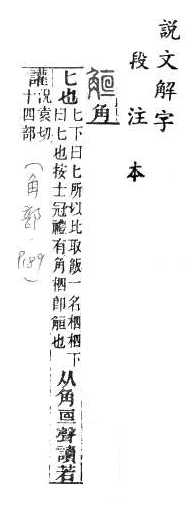 說文解字
段注本
角
匕也 匕下曰匕所以比取飯一名柶柶下
曰匕也按士冠禮有角柶卽也 从角亘聲讀若
讙 況袁切
十四部
(角部. P189)